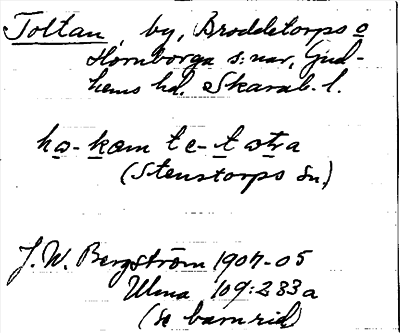 Toltan, by, Broddetorps o
Hornborga s:nar, Gud-
hems hd. Skarab. l.
ho-kom te-t otra
(Stenstorps sn.)
J. W. Bergström 1904-05
Ulma 109:283a
(se barnrid)